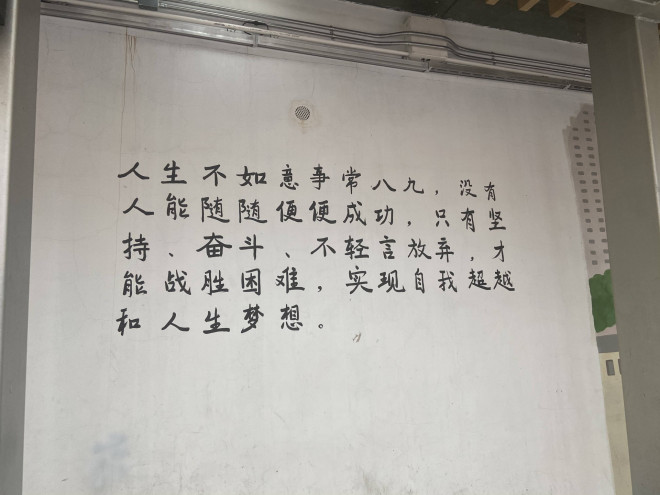 人生不如意事常八九，没有
人能随随便便成功，只有坚
持、奋斗、不轻言放弃，才
能战胜困难，实现自我超越
和人生梦想。